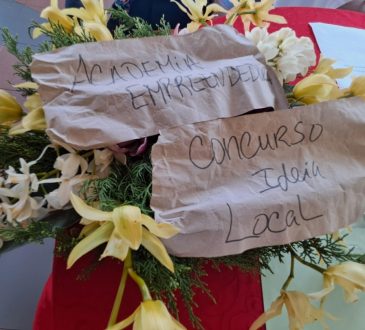 ACADEMIA
EMPREENDEDO
CONCURSO
Ideia
Local